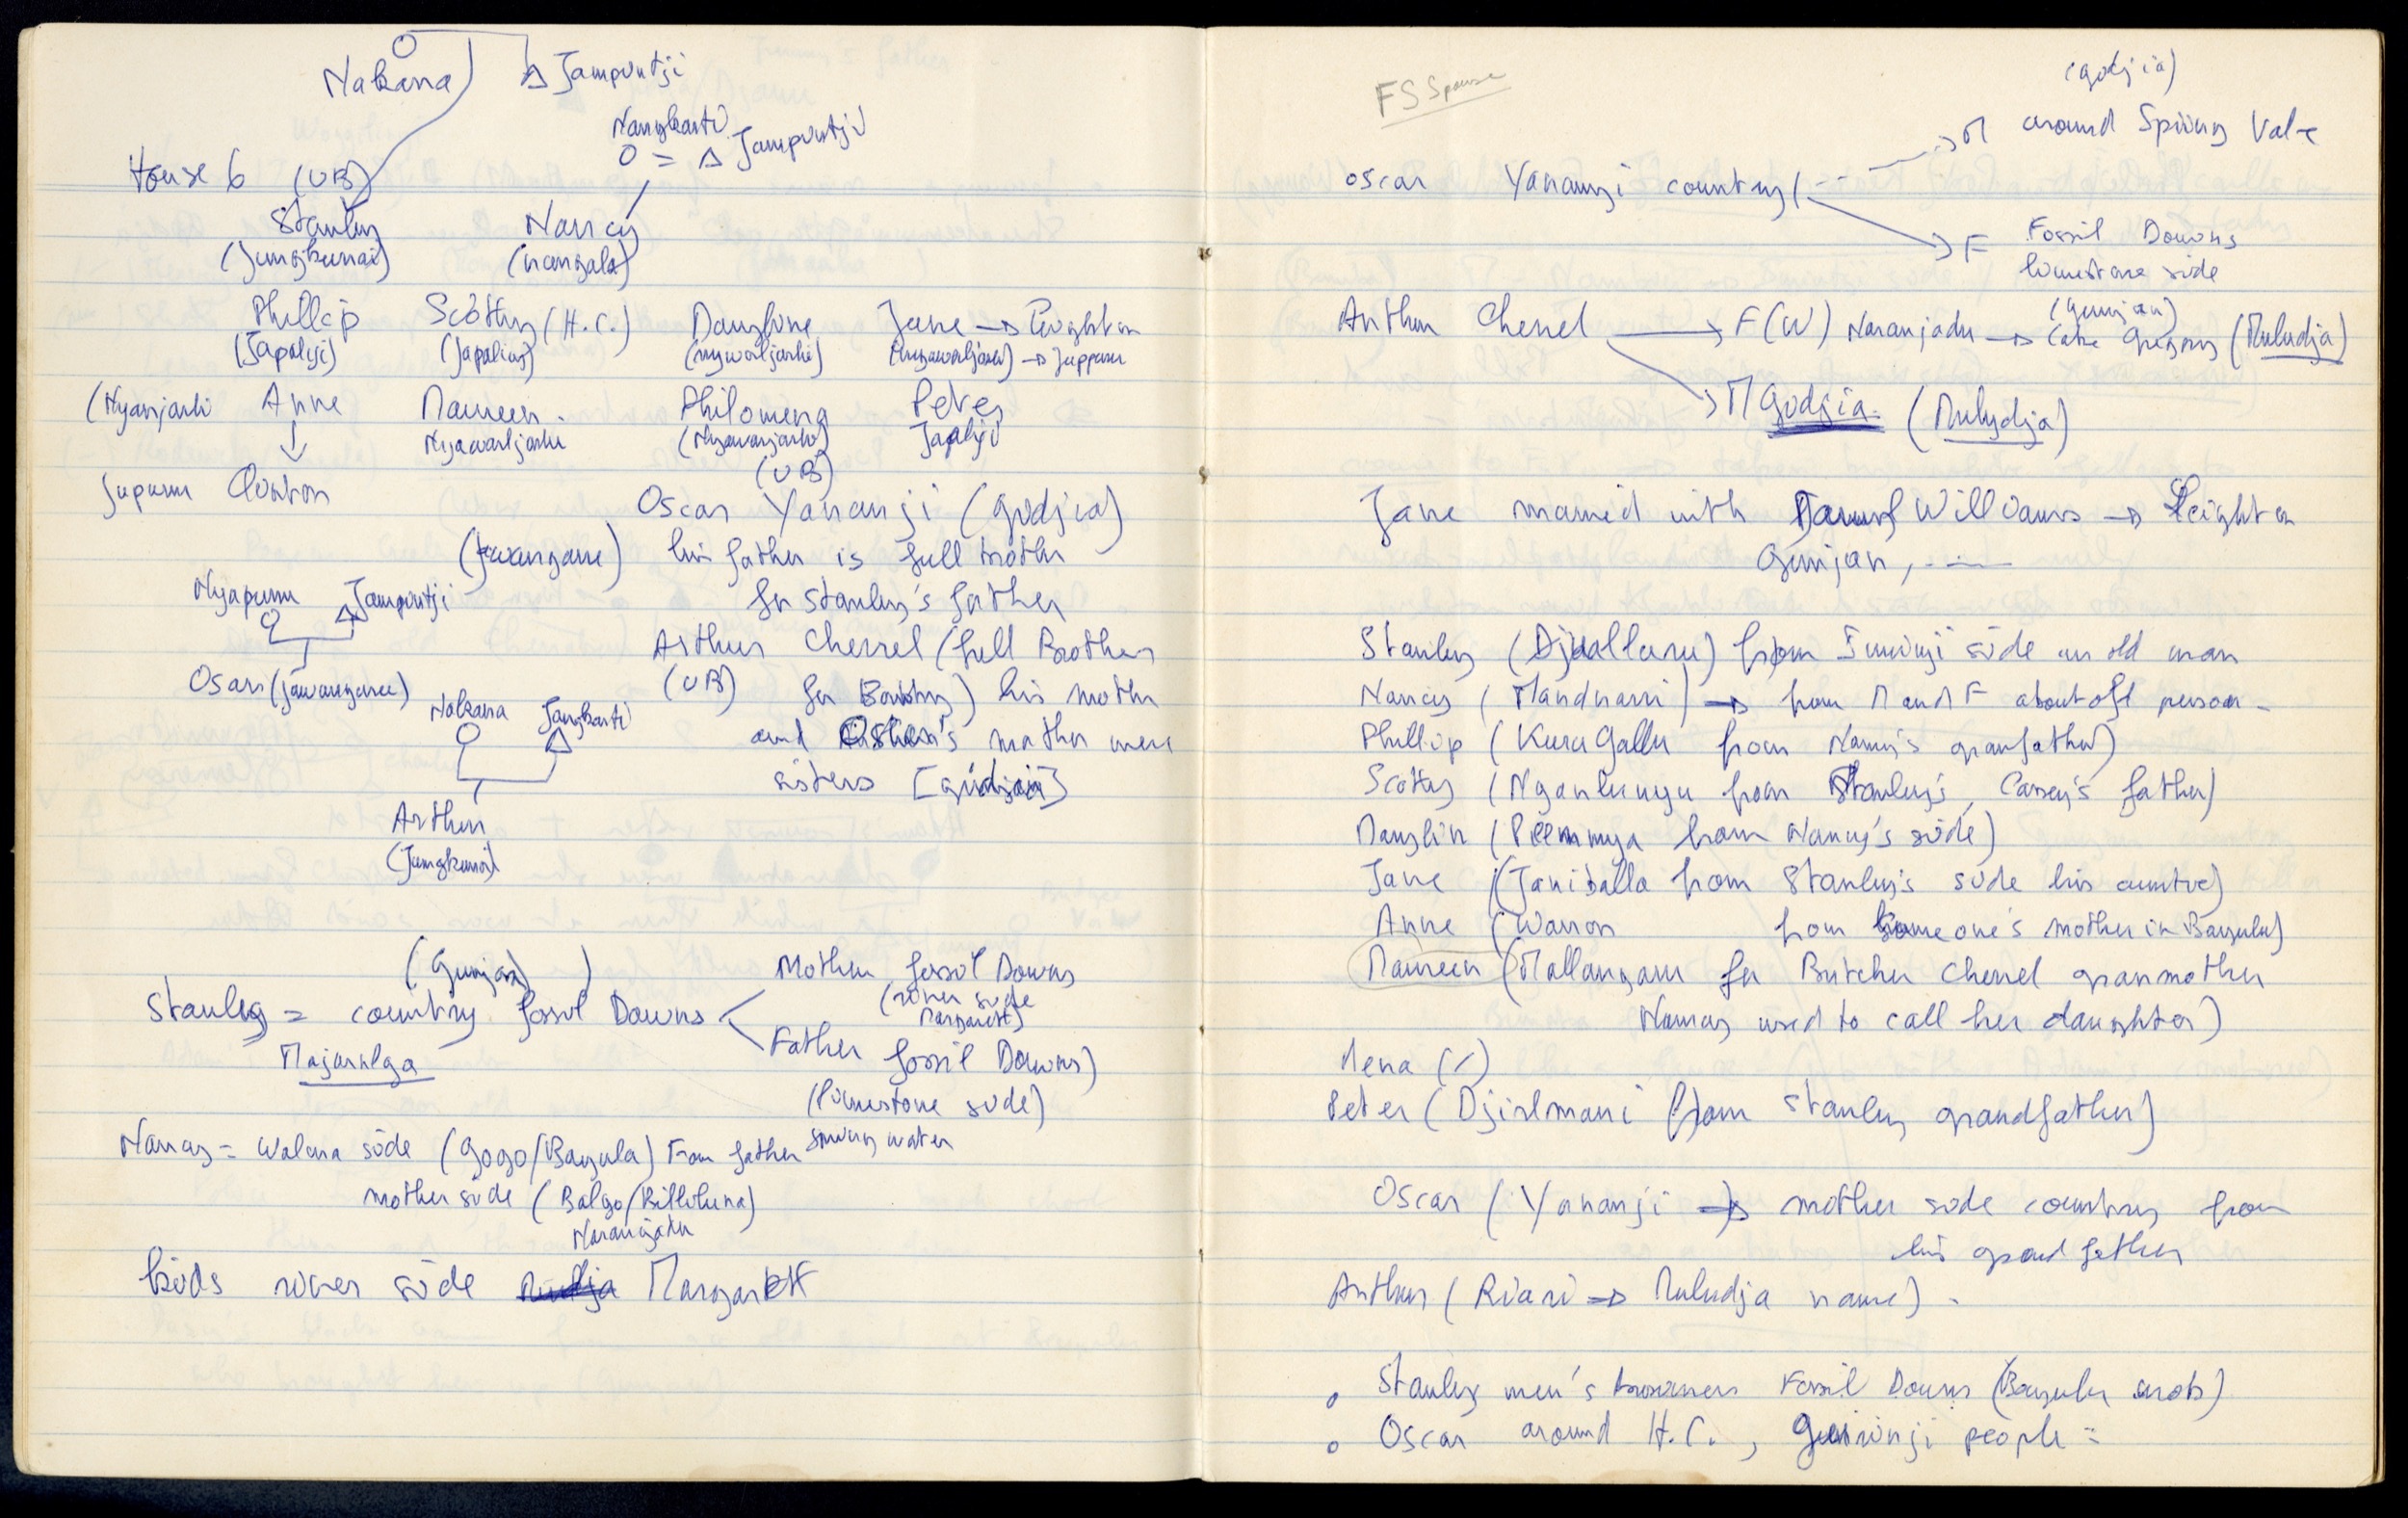 Nakana Jampuntji
Nangkarti Jampintji
O = Δ
House 6 (UB)
Stanley Nancy
(Jungkunai) (nangala)
Phillip Scotty (H.C.) Daugline Jane → Leighton
(Japaliji) (Japaliny) (nyawaljarhi) → Juppuru
(Nyanjarhi Anne Maureen. Philomena Peter
Nyawaljarhi Japliji
(UB)
Jupuru Clinton
Oscar Yananji (Godjia)
(Jawangare) his father is full brother
for Stanley's father
Nyapuru Jampintji
Oscar (Jawangaree)
Arthur Cherrel (full Brother
(UB) for Boutny) his mother
and Oskar's mother were
sisters [gudjia]
Nakana Jangkarti
Arthur
(Jungkunai)
(Gunjan)
Stanley = country fossil Downs
Mother fossil Downs
(river side
Margaret)
Father fossil Downs)
(limestone side)
spring water
Majaralga
Nancy = Walana side (Gogo/Bayula) From father
mother side (Balgo/Billiluna)
Naranjadu
kids river side Margaret
FS Spouse
(godjia)
M around Spring Vale
Oscar Yananji country
F Fossil Downs
limestone side
Arthur Cherrel → F(W) Naranjadu → (Gunjan) Lake Gregory (Muludja)
M Godjia. (Muludja)
Jane married with Williams → Leighton
Gunjan, ----
Stanley (Djuallaru) from side an old man
Nancy (Mandnarri) → from M and F about old person -
Phillip (Kura Gallu from Nancy's granfather)
Scotty (Nganlunyu from Stanley's, Casey's father)
Dauglin (Peemmya from Nancy's side)
Jane (Janiballa from Stanley's side his auntie)
Anne (Warron from someone's mother in Bayulu)
Maureen (Mallangaru for Butcher Cherrel granmother
Nancy used to call her daughter)
Mena (/)
Peter (Djirlmari from Stanley grandfather)
Oscar (Yananji → mother side country from
his grand father
Arthur (Riari → Muludja name) -
o Stanley men's business Fossil Downs (Bayulu mob)
o Oscar around H.C., people =